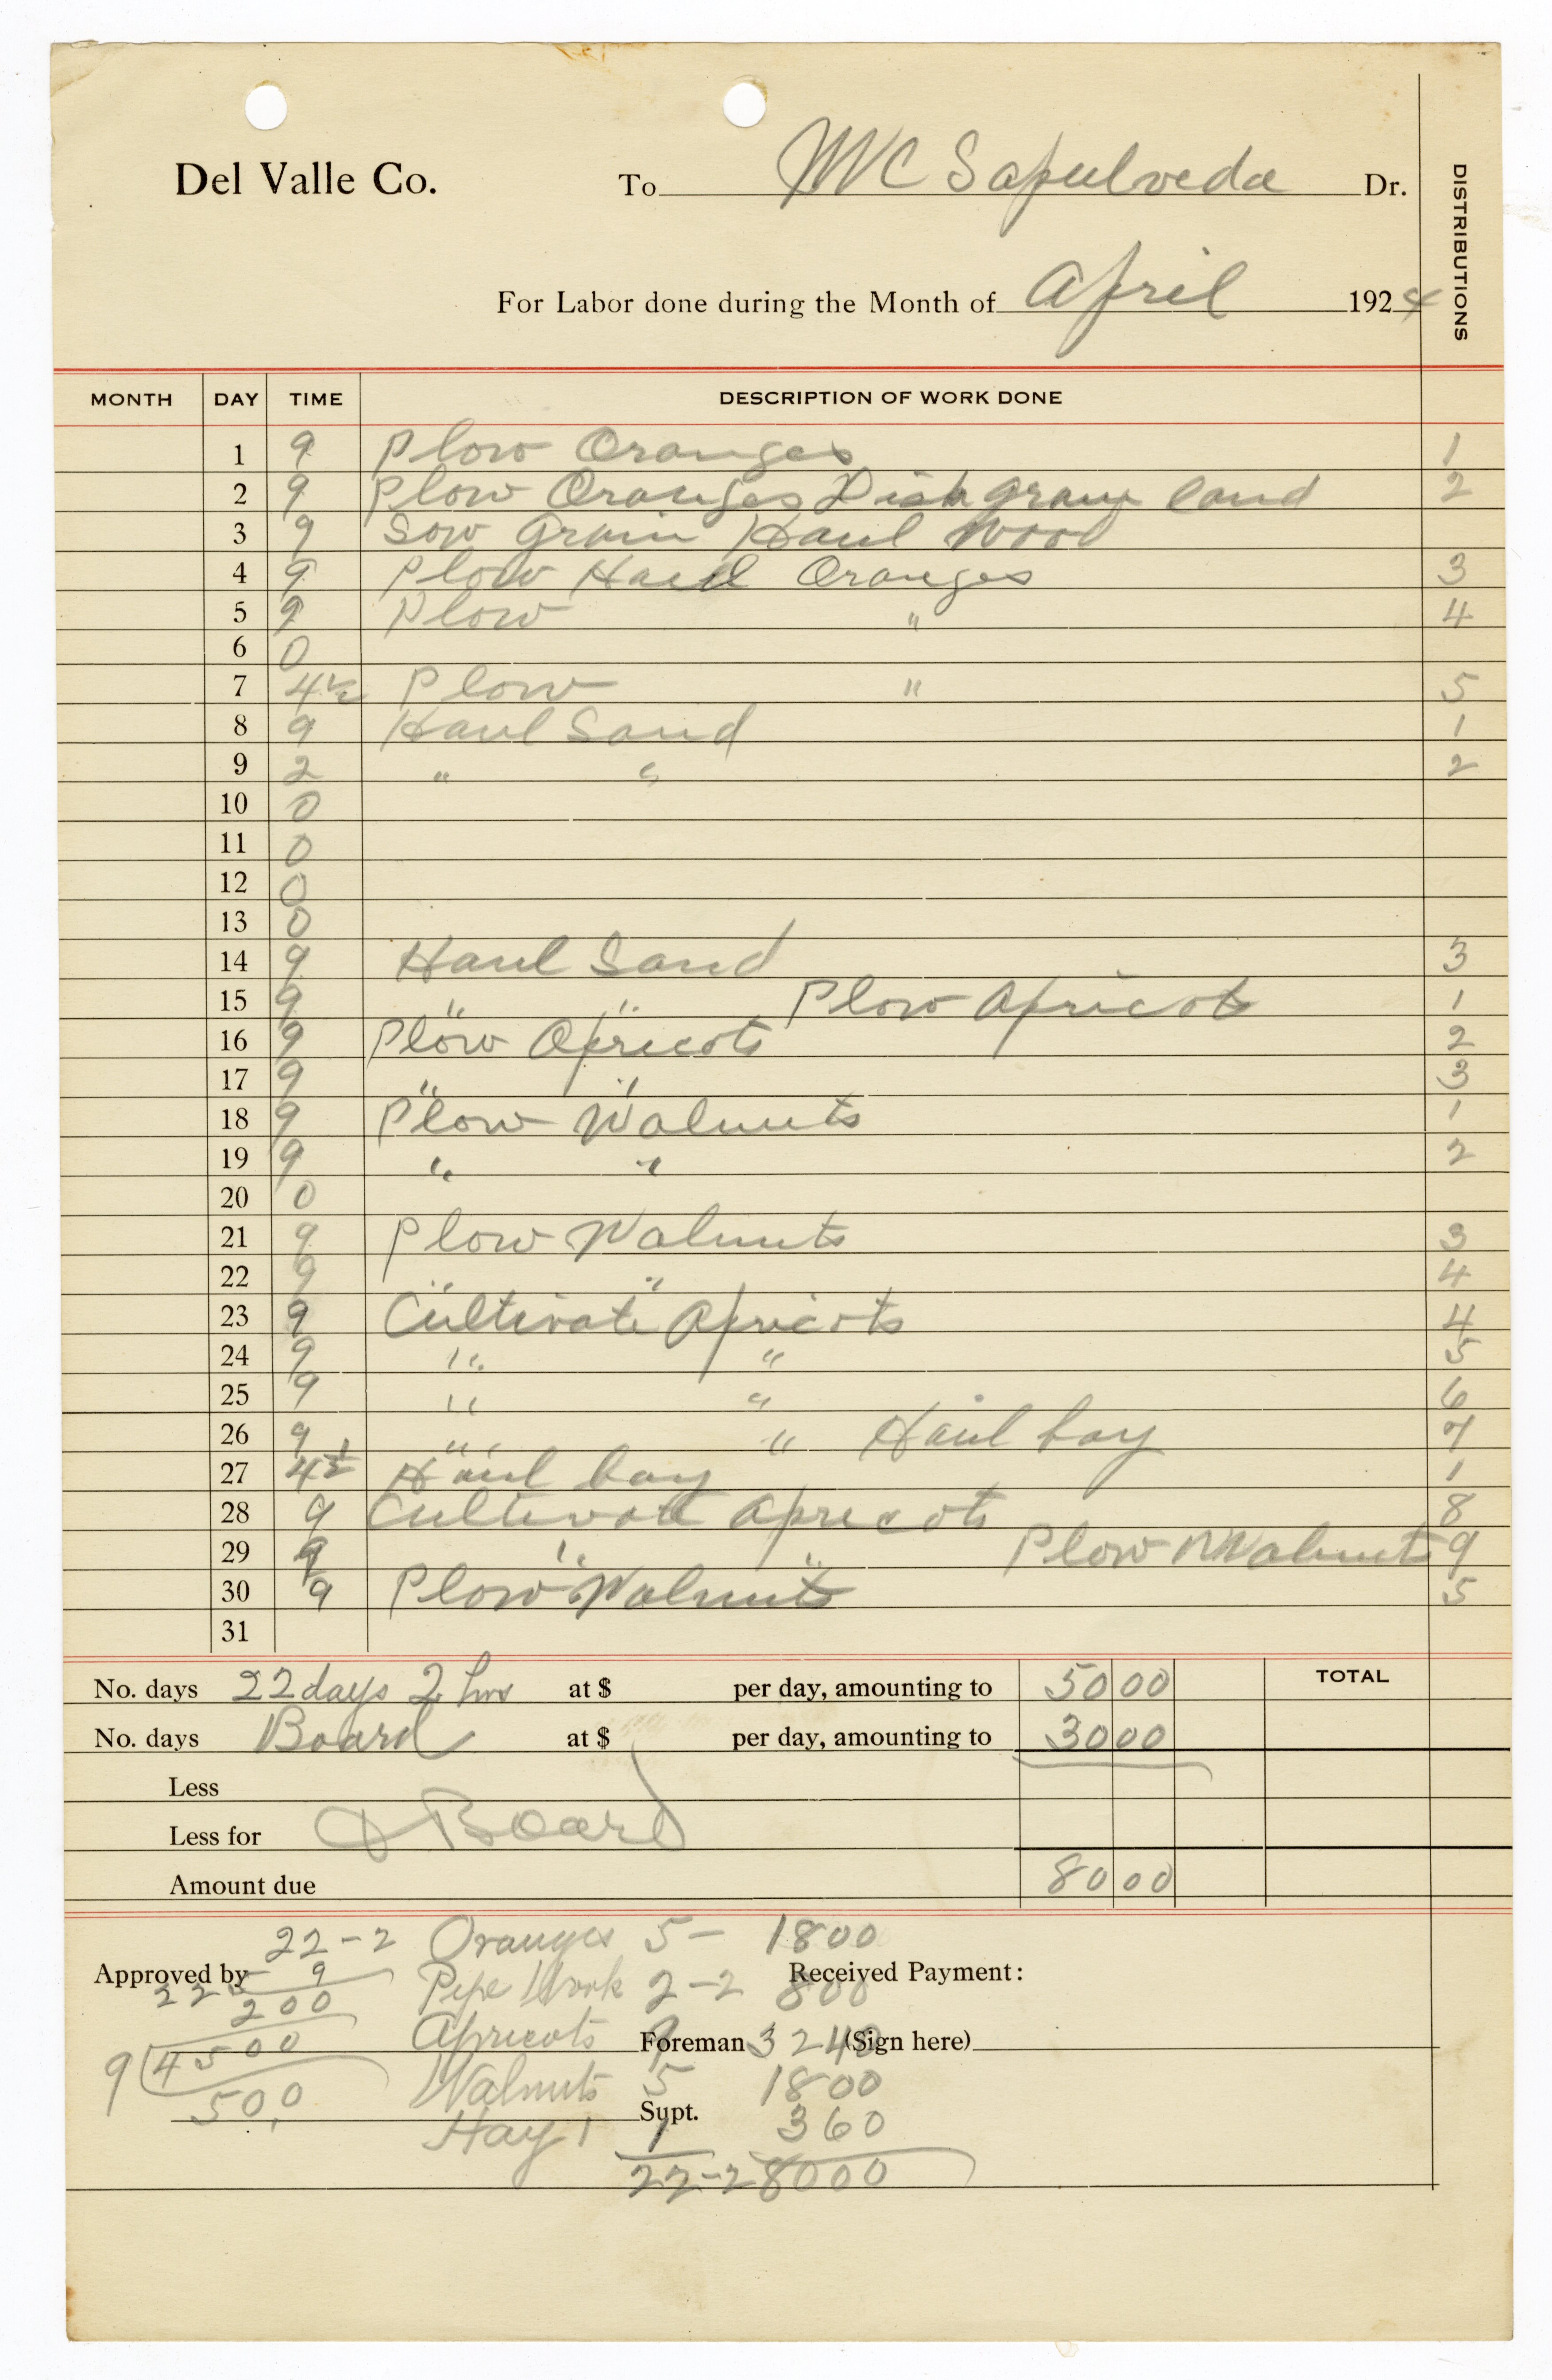 Del Valle Co. To MC Sapulveda Dr.
DISTRIBUTIONS
For Labor done during the Month of April 1924
MONTH DAY TIME DESCRIPTION OF WORK DONE
1 9 Plow Oranges 1
2 9 Plow Oranges Disk grain land 2
3 9 Sow grain Haul Wood
4 9 Plow Haul Oranges 3
5 9 Plow " 4
6 0
7 4½ Plow " 5
8 9 Haul Sand 1
9 2 " " 2
10 0
11 0
12 0
13 0
14 9 Haul Sand 3
15 9 " " Plow Apricots 1
16 9 Plow Apricots 2
17 9 " " 3
18 9 Plow Walnuts 1
19 9 " " 2
20 0
21 9 Plow Walnuts 3
22 9 " " 4
23 9 Cultivate Apricots 4
24 9 " " 5
25 9 " " 6
26 9 " " Haul hay 7
27 4½ Haul hay 1
28 9 Cultivate Apricots 8
29 9 " " Plow Walnuts 9
30 9 Plow Walnuts 5
31
No. days 22 days 2 hrs at $ per day, amounting to 50 00 TOTAL
No. days Board at $ per day, amounting to 30 00
Less
Less for & Board
Amount due 80 00
22-2 Oranges 5- 1800
Approved by 9 Pipe Work 2-2 800 Received Payment:
225
200
Apricots 9 Foreman 3240 (Sign here)
9 4500
Walnuts 5 1800
500
Supt.
Hay 1 1 360
22-2 8000